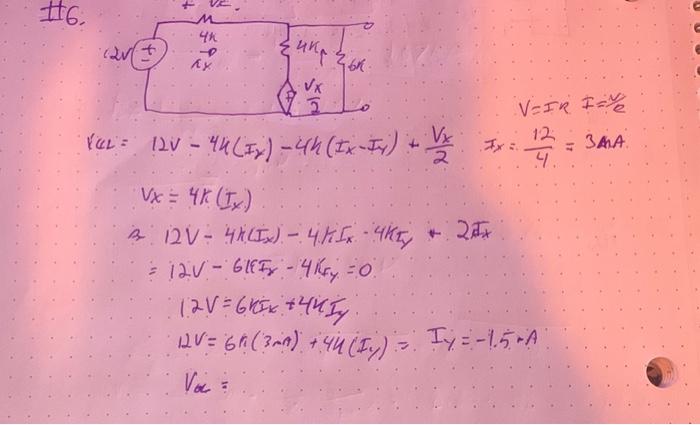 #6.
+ Vx -
4k
Ix
12V
4K
6K
Vx/2
V=IR I=V/R
KVL = 12V - 4k(Ix) - 4k(Ix-Iy) + Vx/2 Ix = 12/4 = 3mA
Vx = 4K(Ix)
⇒ 12V - 4k(Ix) - 4KIx - 4KIy + 2Ix
= 12V - 6KIx - 4KIy = 0
12V = 6KIx + 4KIy
12V = 6k(3mA) + 4k(Iy) = Iy = -1.5mA
Voc =